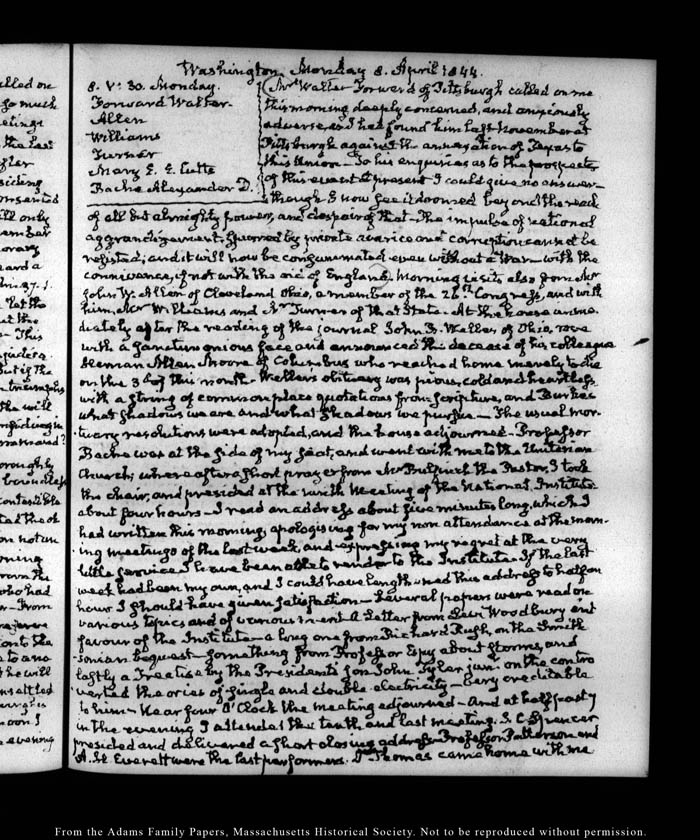 Washington Monday 8. April 1844.
8. V: 30. Monday.
Forward Walter.
Allen
Williams
Turner
Mary E. E. Cutts
Bache Alexander D.
Mr Walter Forward of Pittsburgh called on me
this morning deeply concerned, and anxiously
adverse, as I had found him last November at
Pittsburgh against the annexation of Texas to
this Union— To his enquiries as to the prospects
of this event at present I could give no answer—
though I now see it doomed beyond the reach
of all but almighty power, and despair of that— The impulse of national
aggrandizement, spurred by private avarice and corruption cannot be
resisted; and it will now be consummated even without a War— with the
connivance, if not with the aid of England. Morning visits also from Mr
John W. Allen of Cleveland Ohio, a member of the 26th Congress, and with
him, Mr Williams and Mr Turner of that State. At the house imme-
diately after the reading of the journal John B. Weller of Ohio, rose
with a sanctimonious face and announced the decease of his colleague
Heman Allen Moore of Columbus who reached home merely to die
on the 3d of this month. Wellers obituary was pious, cold and heartless
with a string of common place quotations from Scripture, and Burke's
what shadows we are and what shadows we pursue— The usual mor-
tuary resolutions were adopted, and the house adjourned— Professor
Bache was at the side of my seat, and went with me to the Unitarian
Church; where after a short prayer from Mr Bulfinch the Pastor, I took
the chair, and presided at the ninth Meeting of the National Institute
about four hours— I read an address about five minutes long, which I
had written this morning, apologising for my non attendance at the morn-
ing meetings of the last week, and expressing my regret at the very
little service I have been able to render to the Institute. If the last
week had been my own, and I could have lengthened this address to half an
hour I should have given satisfaction— Several papers were read on
various topics and of various merit. A Letter from Levi Woodbury in
favour of the Institute— a long one from Richard Rush, on the Smith-
sonian bequest— something from Professor Espy about storms, and
lastly a Treatise by the President's son John Tyler junr. on the contro-
verted theories of single and double electricity— very creditable
to him— Near four O'Clock the meeting adjourned— And at half past 7
in the evening I attended the tenth and last meeting. J. C. Spencer
presided and delivered a short closing address. Professor Patterson and
A. H. Everett were the last performers. Dr Thomas came home with me
From the Adams Family Papers, Massachusetts Historical Society. Not to be reproduced without permission.